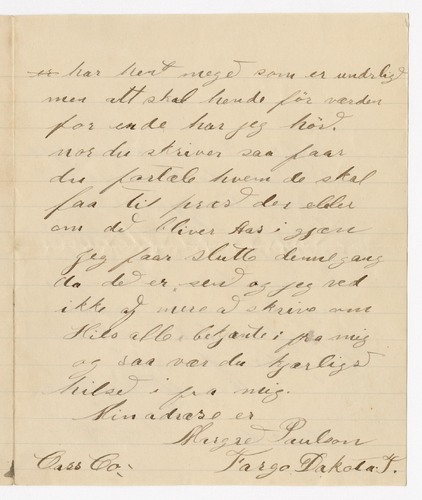 har hent meged som er undrligd
men alt skal hende för værden
for ende har jeg hörd.
nor du skriver saa faar
du fortæle hvem de skal
faa til præsd der elder
om dd bliver Has igjæn
jeg faar slutte denne gang
da de er send og jeg ved
ikke af mere a skrive om
Hils alle bekjænte i fra mig
og saa vær du kjærligd
hilsed i fra mig.
Min adræse er
Margred Paulson
Cass Co. Fargo Dakota. T.